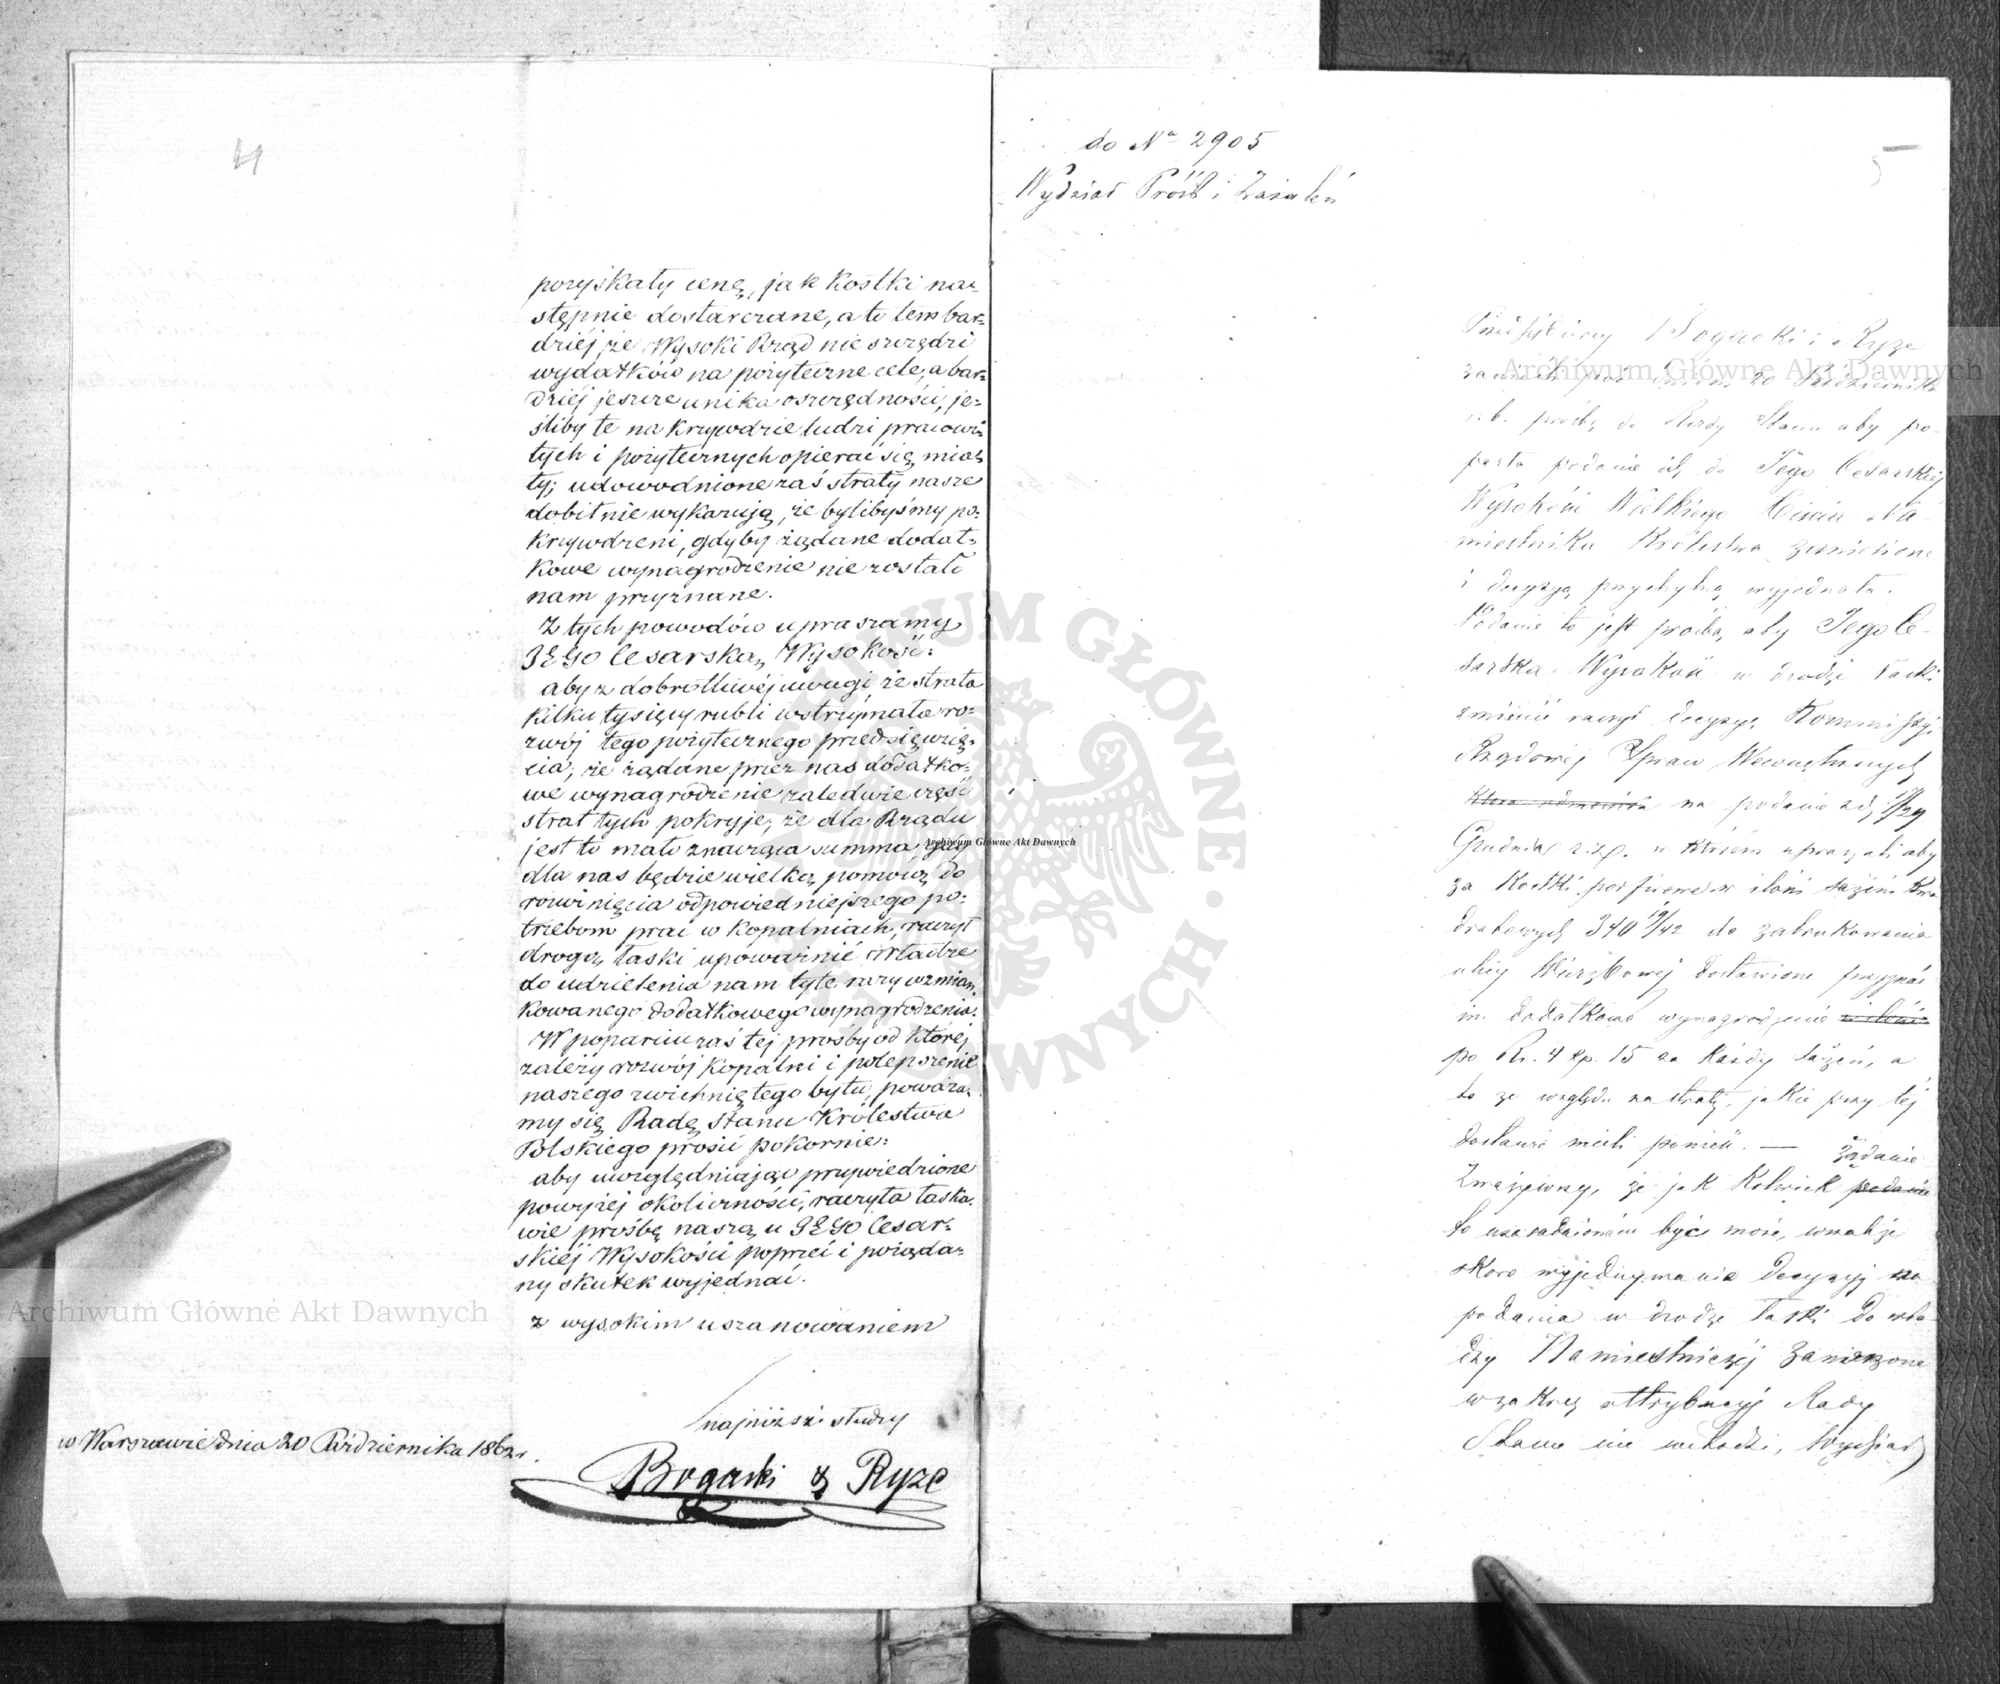 4
pozyskały cenę, jak kostki na=
stępnie dostarczane, a to tem bar=
dziéj, że Wysoki Rząd nie szczędzi
wydatków na pożyteczne cele, a bar=
dziéj jeszcze unika oszczędności, je=
śliby te na krzywdzie ludzi pracowi=
tych i pożytecznych opierać się mia=
ły; udowodnione zaś straty nasze
dobitnie wykazują, że bylibyśmy po=
krzywdzeni, gdyby żądane dodat=
kowe wynagrodzenie nie zostało
nam przyznane.
Z tych powodów upraszamy
JEGO Cesarską Wysokość:
aby z dobrotliwéj uwagi, że strata
kilku tysięcy rubli wstrzymała ro=
zwój tego pożytecznego przedsięwzię=
cia, że żądane przez nas dodatko=
we wynagrodzenie zaledwie część
strat tych pokryje, że dla Rządu
jest to mało znacząca summa, gdy
dla nas będzie wielką pomocą do
rozwinięcia odpowiedniejszego po=
trzebom prac w kopalniach, raczył
drogą łaski upoważnić Władze
do udzielenia nam tyle razy wzmian=
kowanego dodatkowego wynagrodzenia.
W poparciu zaś tej prośby od której
zależy rozwój kopalni i polepszenie
naszego zwichniętego bytu, poważa=
my się Radę Stanu Królestwa
Polskiego prosić pokornie:
aby uwzględniając przywiedzione
powyżej okoliczności, raczyła łaska=
wie prośbę naszą u JEGO Cesar=
skiéj Wysokości poprzeć i pożąda=
ny skutek wyjednać.
z wysokim uszanowaniem
najniżsi słudzy
w Warszawie dnia 20 Października 1862 r.
Bogacki & Ryze
do Nа 2905
Wydział Próśb i Zażaleń
5
Przedsiębiorcy Bogacki i Ryze
zanieśli pod dniem 20 Października
r. b. prośbę do Rady Stanu aby po-
parła podanie ich do Jego Cesarskiej
Wysokości Wielkiego Księcia Na-
miestnika Królestwa zaniesione
i decyzyą przychylną wyjednała.
Podanie to jest prośbą, aby Jego Ce-
sarska Wysokość w drodze łaski
zmienić raczył decyzyę Kommissyi
Rządowéj Spraw Wewnętrznych
która odmówiła na podanie z d. 17/29
Grudnia r. z. w którém upraszali aby
za kostki porfirowe w ilości sążeni kwa
dratowych 340 19/42 do zabrukowania
ulicy Wierzbowej dostawione przyznać
im dodatkowe wynagrodzenie w ilości
po Rs. 4 kp. 15 za każdy sążeń, a
to ze względu na straty, jakie przy téj
dostawie mieli ponieść. — Żądanie
Zważywszy, że jak kolwiek podanie
to uzasadnioném być może, wszakże
skoro wyjednywanie decyzyj na
podania w drodze łaski do wła-
dzy Namiestniczéj zaniesione
w zakres attrybucyj Rady
Stanu nie wchodzi, Wydział
Archiwum Główne Akt Dawnych
Archiwum Główne Akt Dawnych
Archiwum Główne Akt Dawnych
ARCHIWUM GŁÓWNE AKT DAWNYCH